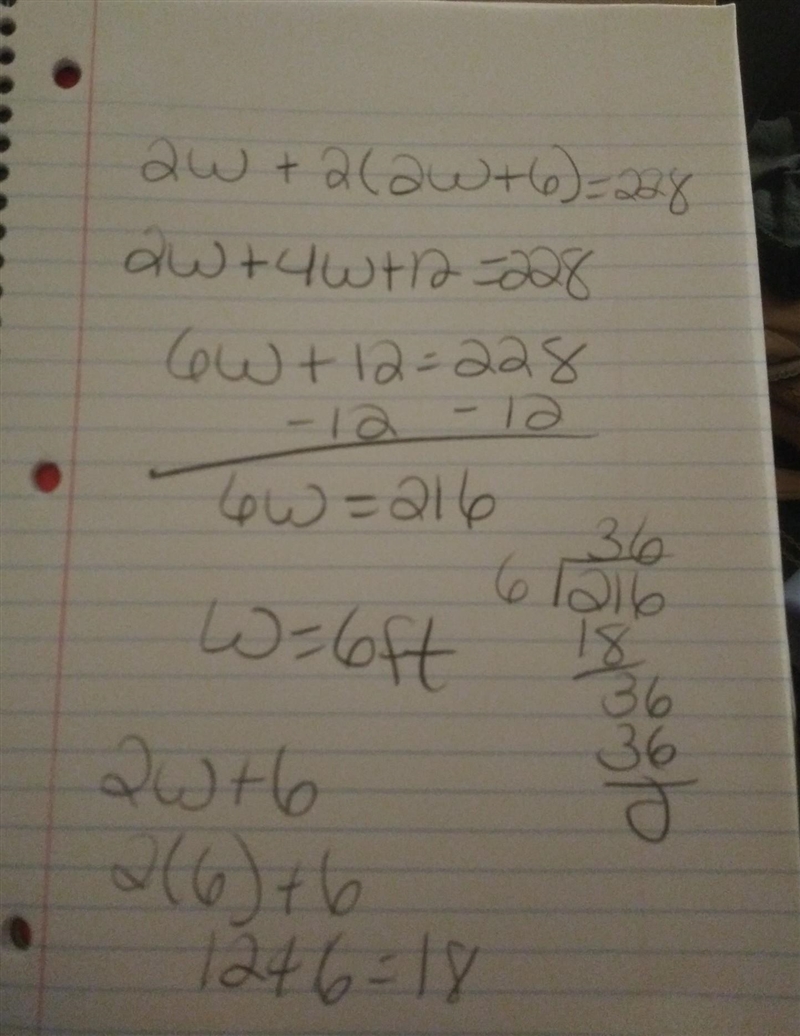 2w + 2(2w+6)=228
2w+4w+12=228
6w+12=228
-12 -12
6w=216
36
6 216
18
36
36
0
w=6ft
2w+6
2(6)+6
12+6=18